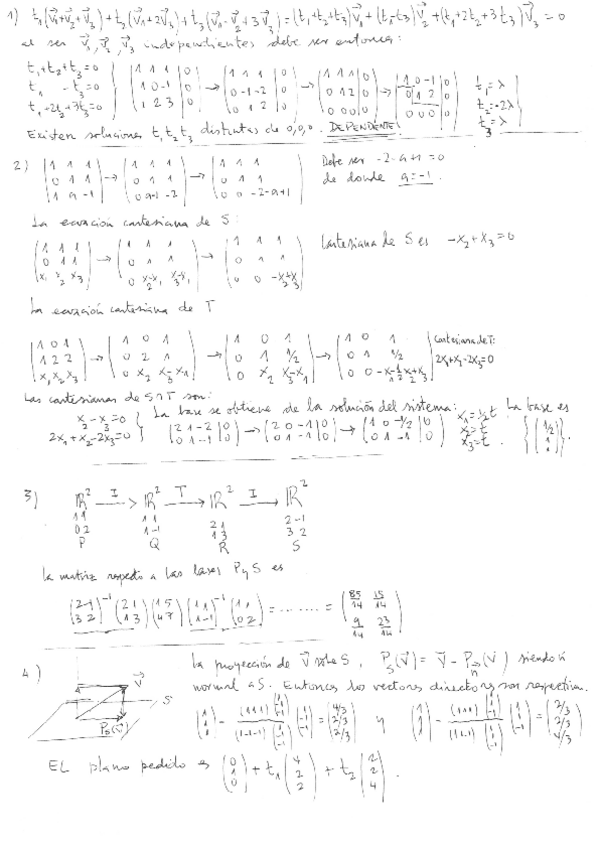 1) t₁(v⃗₁+v⃗₂+v⃗₃)+t₂(v⃗₁+2v⃗₃)+t₃(v⃗₁-v⃗₂+3v⃗₃)=(t₁+t₂+t₃)v⃗₁+(t₁-t₃)v⃗₂+(t₁+2t₂+3t₃)v⃗₃=0
al ser v⃗₁, v⃗₂, v⃗₃ independientes debe ser entonces:
t₁+t₂+t₃=0
t₁ -t₃=0
t₁+2t₂+3t₃=0
(1 1 1 | 0; 1 0 -1 | 0; 1 2 3 | 0) → (1 1 1 | 0; 0 -1 -2 | 0; 0 1 2 | 0) → (1 1 1 | 0; 0 1 2 | 0; 0 0 0 | 0) → (1 0 -1 | 0; 0 1 2 | 0; 0 0 0 | 0)
t₁=λ
t₂=-2λ
t₃=λ
Existen soluciones t₁ t₂ t₃ distintas de 0,0,0. DEPENDENTES
2) (1 1 1; 0 1 1; 1 a -1) → (1 1 1; 0 1 1; 0 a-1 -2) → (1 1 1; 0 1 1; 0 0 -2-a+1)
Debe ser -2-a+1=0
de donde a=-1.
La ecuación cartesiana de S:
(1 1 1; 0 1 1; x₁ x₂ x₃) → (1 1 1; 0 1 1; 0 x₂-x₁ x₃-x₁) → (1 1 1; 0 1 1; 0 0 -x₂+x₃)
Cartesiana de S es -x₂+x₃=0
La ecuación cartesiana de T
(1 0 1; 1 2 2; x₁ x₂ x₃) → (1 0 1; 0 2 1; 0 x₂ x₃-x₁) → (1 0 1; 0 1 1/2; 0 x₂ x₃-x₁) → (1 0 1; 0 1 1/2; 0 0 -x₁-½x₂+x₃)
Cartesiana de T:
2x₁+x₂-2x₃=0
Las cartesianas de S∩T son:
x₂-x₃=0
2x₁+x₂-2x₃=0
La base se obtiene de la solución del sistema:
(2 1 -2 | 0; 0 1 -1 | 0) → (2 0 -1 | 0; 0 1 -1 | 0) → (1 0 -1/2 | 0; 0 1 -1 | 0)
x₁=½t
x₂=t
x₃=t
La base es
{(1/2; 1; 1)}.
3) ℝ² —I→ ℝ² —T→ ℝ² —I→ ℝ²
1 1 1 1 2 1 2 -1
0 2 1 -1 1 3 3 2
P Q R S
La matriz respecto a las bases P y S es
(2 -1; 3 2)⁻¹ (2 1; 1 3) (1 5; 4 7) (1 1; 1 -1)⁻¹ (1 1; 0 2) = ........ = (85/14 15/14; 9/14 23/14)
4) v⃗
S
P_S(v⃗)
La proyección de v⃗ sobre S, P_S(v⃗) = v⃗ - P_n⃗(v⃗) siendo n⃗
normal a S. Entonces los vectores directores son respectivm.
y
EL plano pedido es (0; 1; 0) + t₁ (4; 2; 2) + t₂ (2; 2; 4).